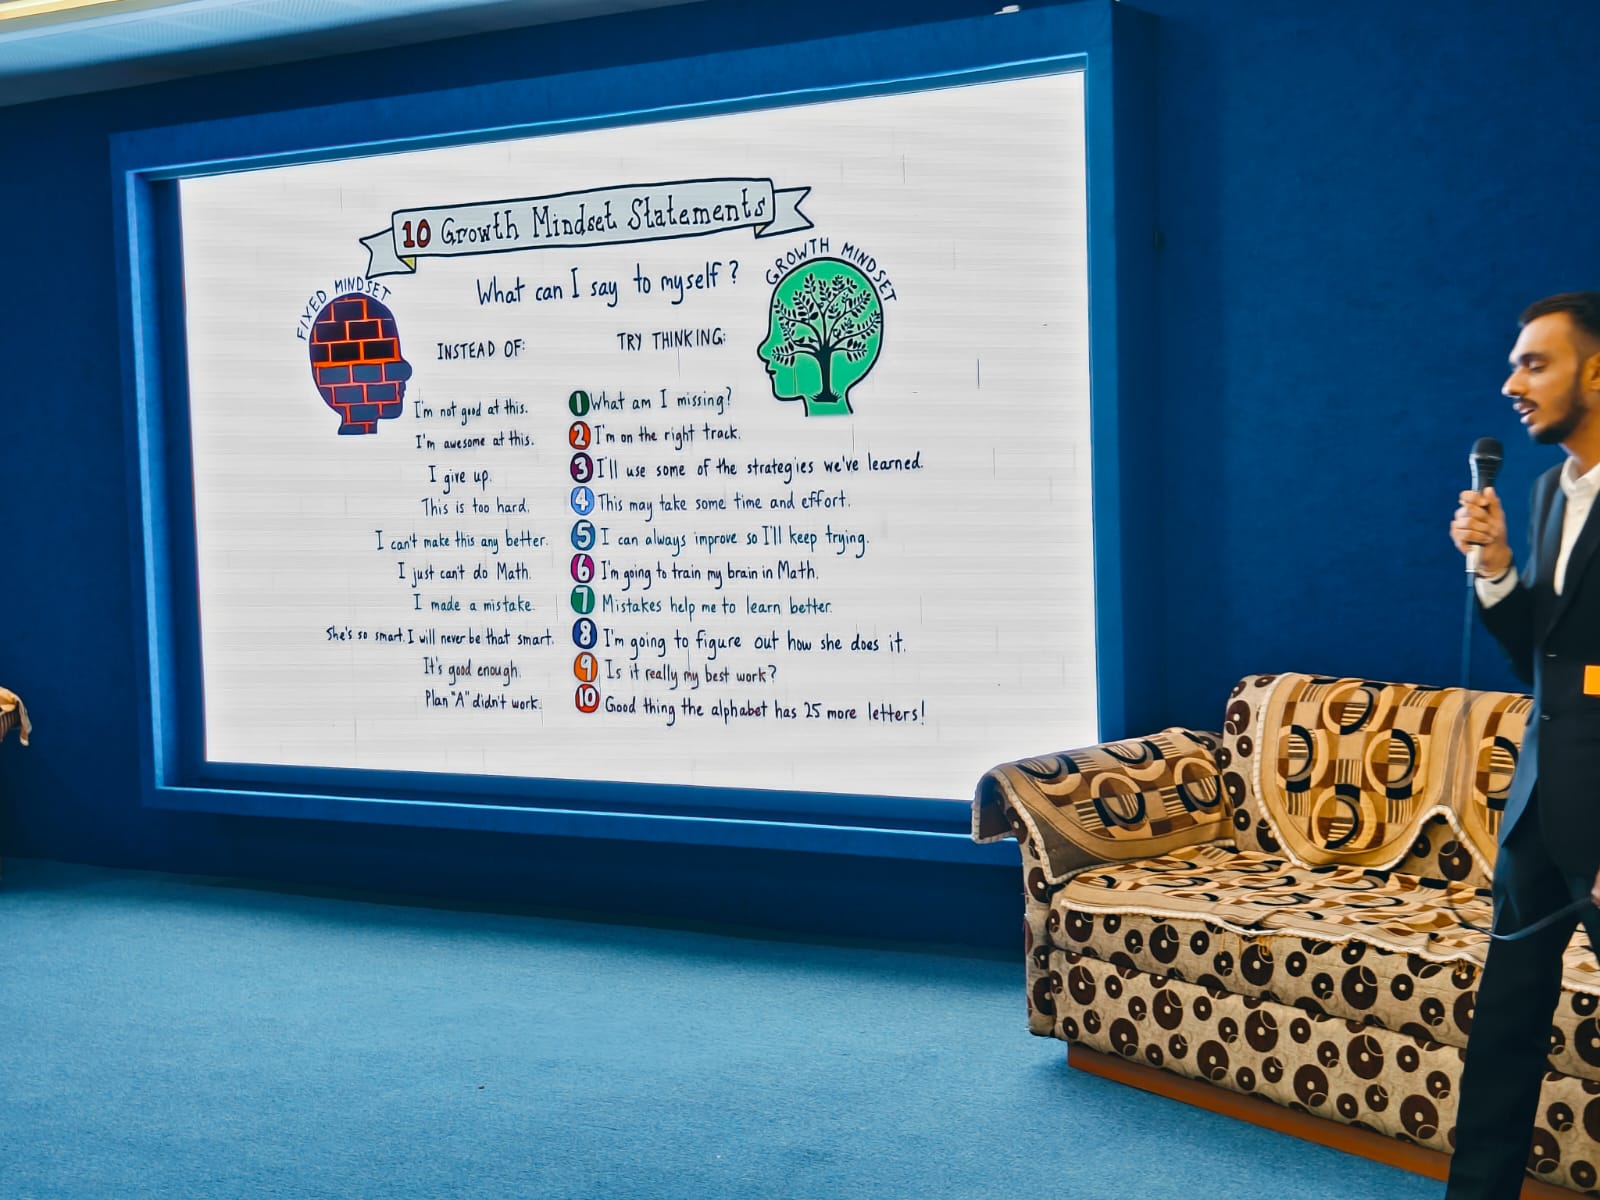 10 Growth Mindset Statements
What can I say to myself?
FIXED MINDSET
GROWTH MINDSET
INSTEAD OF:
TRY THINKING:
I'm not good at this. 1 What am I missing?
I'm awesome at this. 2 I'm on the right track.
I give up. 3 I'll use some of the strategies we've learned.
This is too hard. 4 This may take some time and effort.
I can't make this any better. 5 I can always improve so I'll keep trying.
I just can't do Math. 6 I'm going to train my brain in Math.
I made a mistake. 7 Mistakes help me to learn better.
She's so smart. I will never be that smart. 8 I'm going to figure out how she does it.
It's good enough. 9 Is it really my best work?
Plan "A" didn't work. 10 Good thing the alphabet has 25 more letters!